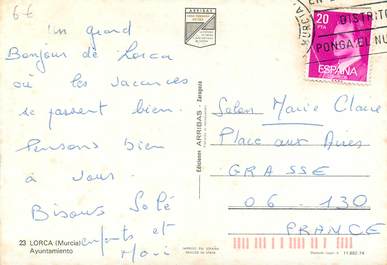 6€
un grand
Bonjour de Lorca
où les vacances
se passent bien.
Pensons bien
à vous.
Bisous Solé
enfants et
23 LORCA (Murcia)
Ayuntamiento
ARRIBAS
Ediciones ARRIBAS - Zaragoza
IMPRESO EN ESPAÑA
20
PTA
ESPAÑA
MURCIA
DISTRITO
PONGA EL NU
Salon Marie Claire
Place aux Aires
GRASSE
06-130
FRANCE